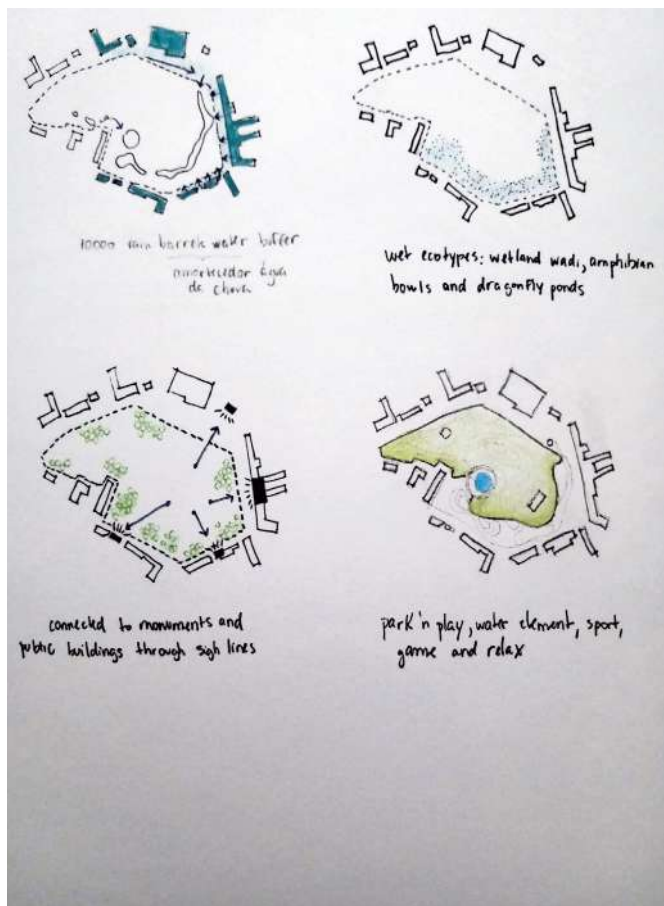 10000 rain barrels water buffer
amortecedor água
de chuva
wet ecotypes: wetland wadi, amphibian
bowls and dragonfly ponds
connected to monuments and
public buildings through sigh lines
park 'n play, water element, sport,
game and relax